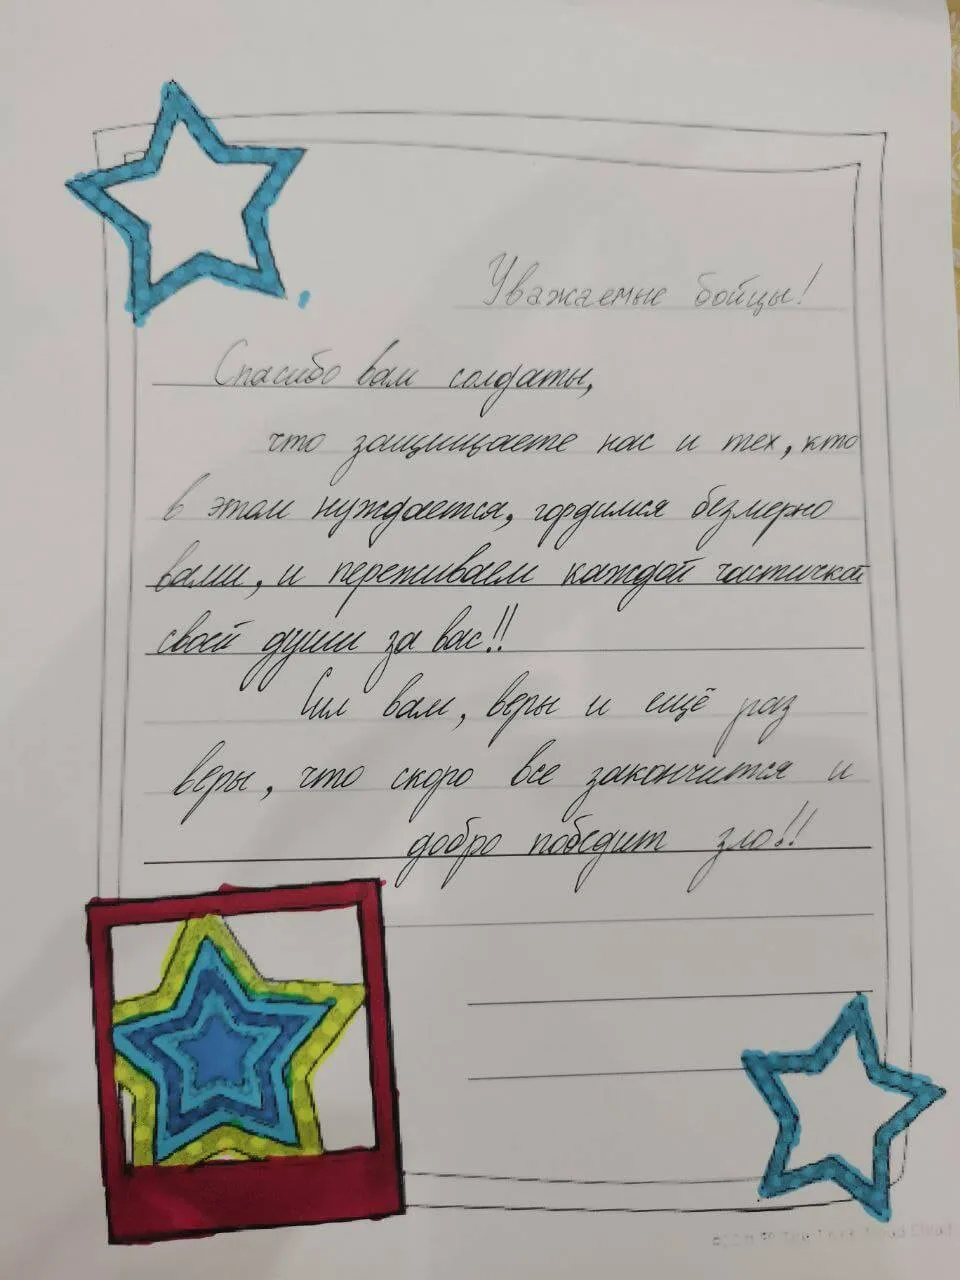 Уважаемые бойцы!
Спасибо вам солдаты,
что защищаете нас и тех, кто
в этом нуждается, гордимся безмерно
вами, и переживаем каждой частичкой
своей души за вас!!
Сил вам, веры и ещё раз
веры, что скоро все закончится и
добро победит зло!!